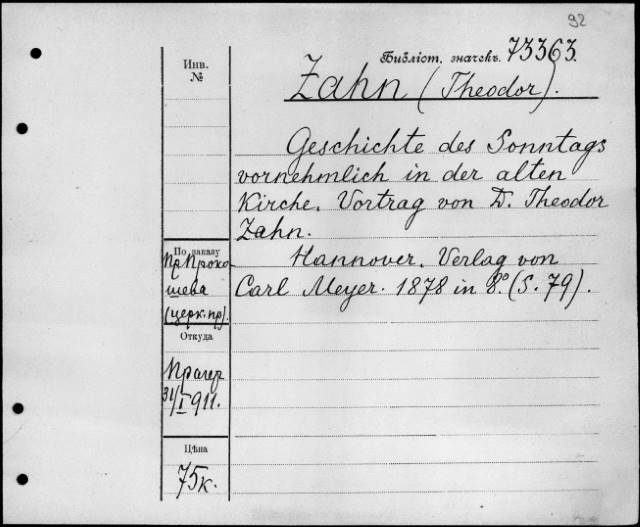 92
Библіот. значекъ. 73363.
Инв.
№
Zahn (Theodor).
Geschichte des Sonntags
vornehmlich in der alten
Kirche. Vortrag von D. Theodor
Zahn.
Hannover. Verlag von
Carl Meyer. 1878 in 8º. (S. 79).
По заказу
Пр. Проко-
шева
(церк. пр).
Откуда
Прагер
31/I 911.
Цѣна
75 к.